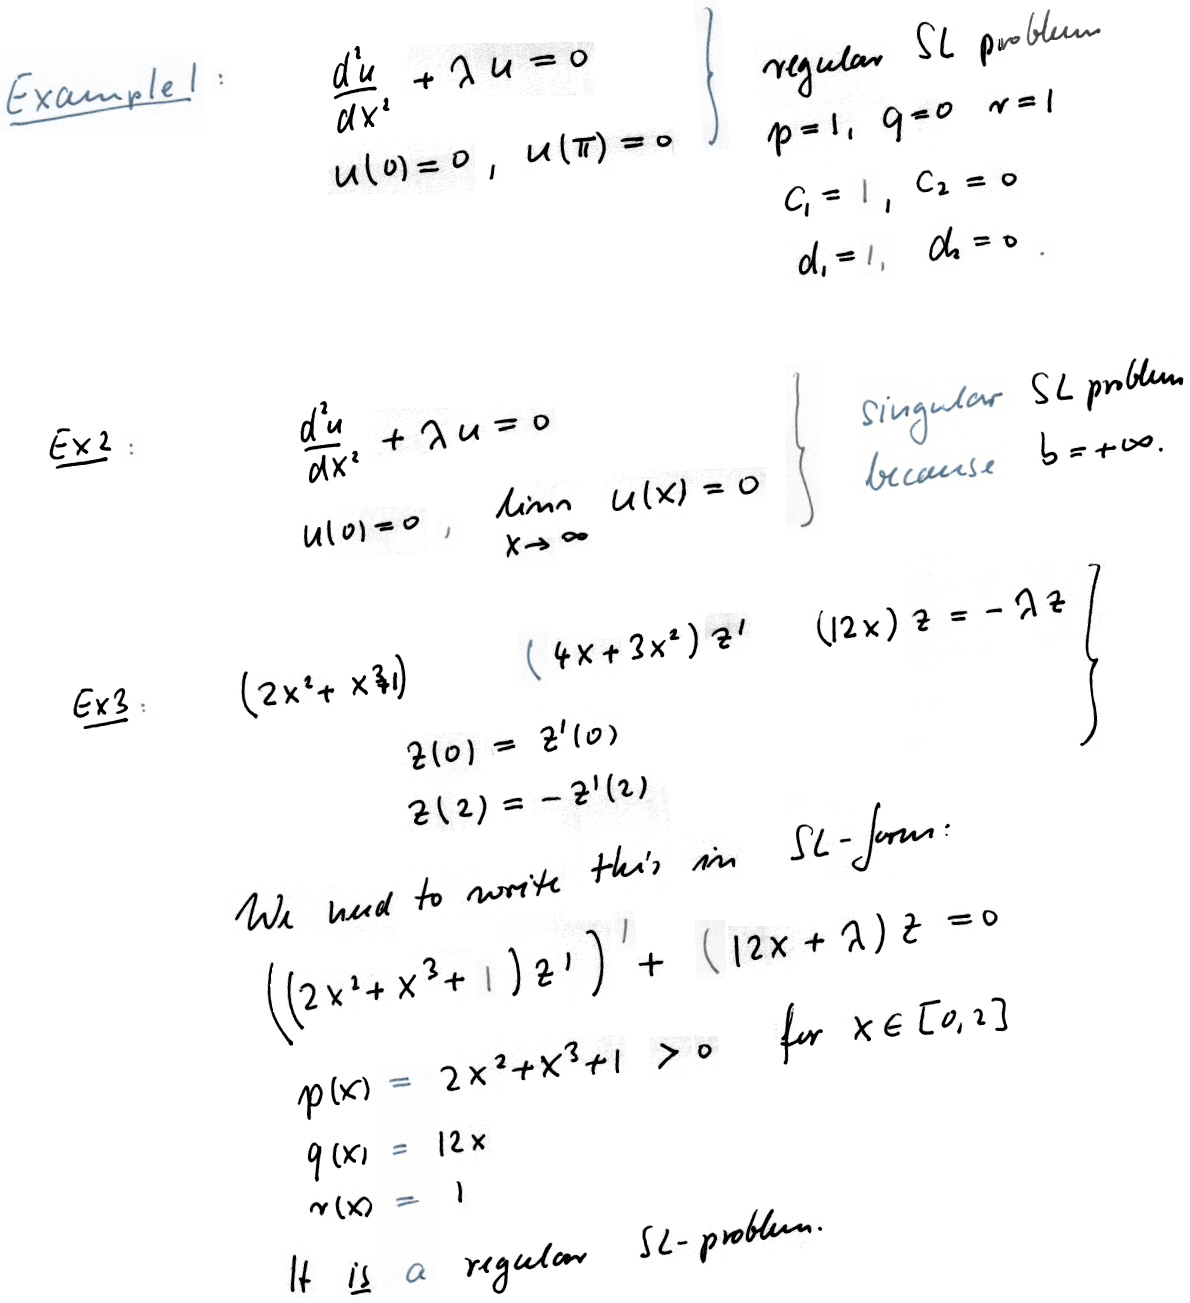 Example 1: d²u/dx² + λu = 0
u(0) = 0, u(π) = 0
regular SL problem
p = 1, q = 0 r = 1
C₁ = 1, C₂ = 0
d₁ = 1, d₂ = 0.
Ex 2: d²u/dx² + λu = 0
u(0) = 0, lim x→∞ u(x) = 0
singular SL problem
because b = +∞.
Ex 3: (2x² + x³+1) (4x + 3x²) z' (12x) z = -λz
z(0) = z'(0)
z(2) = -z'(2)
We need to write this in SL-form:
((2x² + x³ + 1) z')' + (12x + λ) z = 0
p(x) = 2x² + x³ + 1 > 0 for x ∈ [0,2]
q(x) = 12x
r(x) = 1
It is a regular SL-problem.